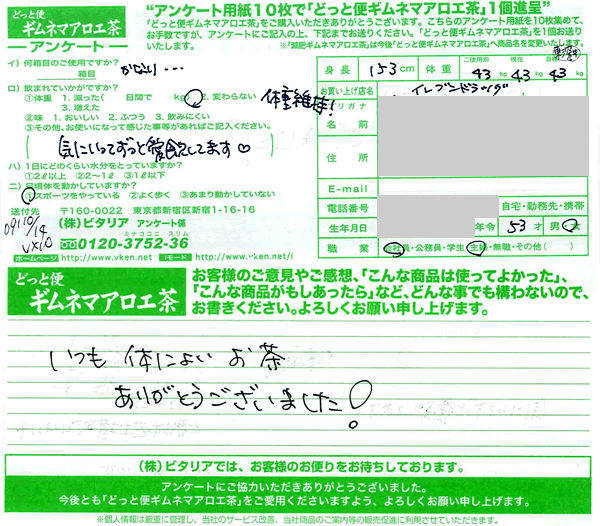 どっと便
ギムネマアロエ茶
アンケート
"アンケート用紙10枚で「どっと便ギムネマアロエ茶」1個進呈"
「どっと便ギムネマアロエ茶」をご購入いただきありがとうございます。こちらのアンケート用紙を10枚集めて、
お手数ですが、アンケートにご記入の上、下記までお送りください。「どっと便ギムネマアロエ茶」を1個お送り
いたします。 ※「減肥ギムネマアロエ茶」は今後「どっと便ギムネマアロエ茶」へ商品名を変更いたします。
イ)何箱目のご使用ですか?
箱目 かなり・・・
ロ)飲まれていかがですか?
①体重 1.減った( 日間で kg) 2.変わらない
3.増えた
体重維持!
②味 1.おいしい 2.ふつう 3.飲みにくい
③その他、お使いになって感じた事等があればご記入ください。
(気にいってずっと愛飲してます♡)
ハ)1日にどのくらい水分をとっていますか?
①2ℓ以上 ②2~1ℓ ③1ℓ以下
ニ)日頃体を動かしていますか?
①スポーツをやっている ②よく歩く ③あまり動かしていない
送付先
〒160-0022 東京都新宿区新宿1-16-16
(株)ビタリア アンケート係
ミナココニ スリム
0120-3752-36
ホームページ http://www.vken.net iモード http://www.vken.net/i
身長 153cm 体重 ご使用前 43kg 現在 43kg 目標 43kg
お買い上げ店名
フリガナ
名前
住所
E-mail
電話番号 自宅・勤務先・携帯
生年月日 年令 53才 男・女
職業 会社員・公務員・学生・主婦・無職・その他( )
どっと便
ギムネマアロエ茶
お客様のご意見やご感想、「こんな商品は使ってよかった」、
「こんな商品がもしあったら」など、どんな事でも構わないので、
お書きください。よろしくお願い申し上げます。
いつも 体によい お茶
ありがとうございました!
(株)ビタリアでは、お客様のお便りをお待ちしております。
アンケートにご協力いただきありがとうございました。
今後とも「どっと便ギムネマアロエ茶」をご愛用くださいますよう、よろしくお願い申し上げます。
※個人情報は厳重に管理し、当社のサービス改善、当社商品のご案内等の販売促進に利用させていただきます。